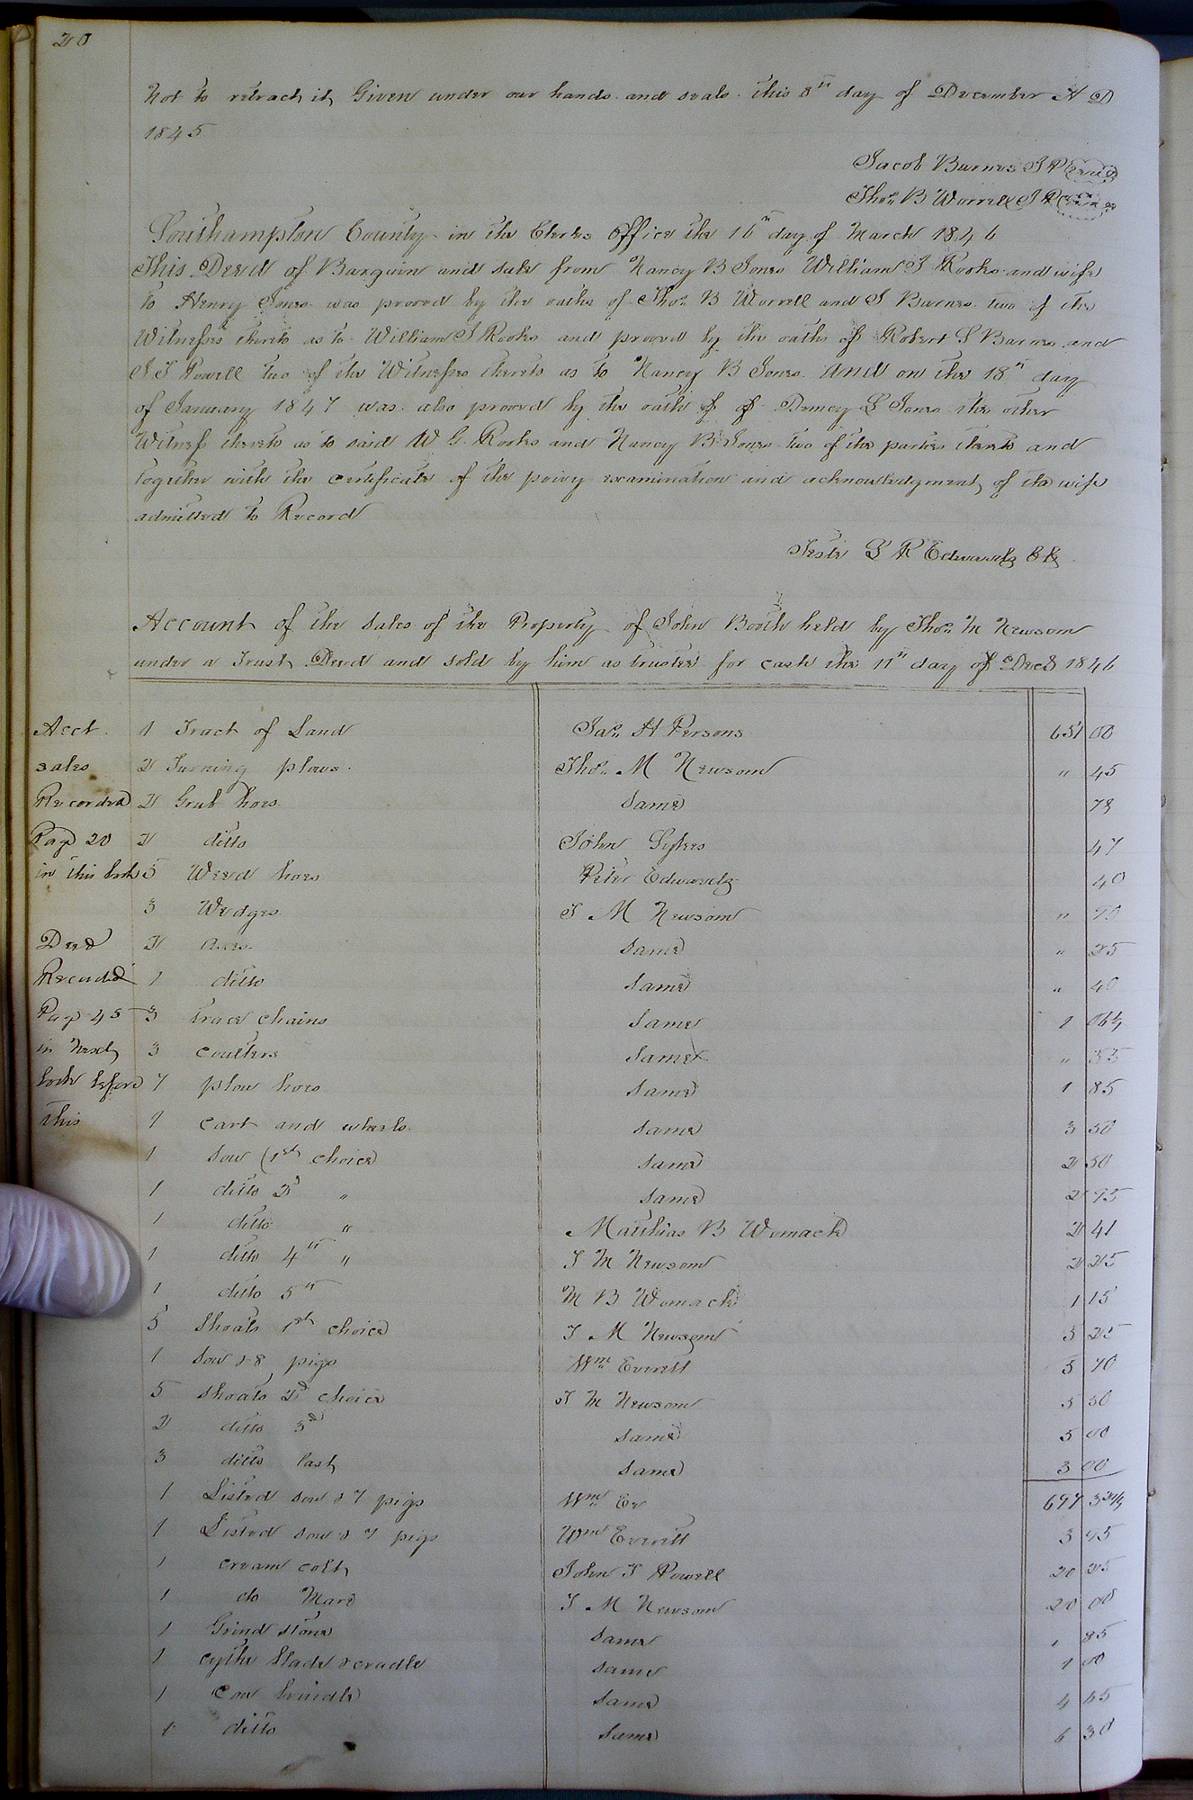 20
Not to retract it, Given under our hands and seals this 8th day of December A D
1845
Jacob Barnes J P Seal
Thos. B Worrell J P Seal
Southampton County in the Clerks Office the 16th day of March 1846
This Deed of Bargain and Sale from Nancy B Jones William J Rooks and wife
to Henry Jones was proved by the oaths of Thos. B Worrell and J Barnes two of the
Witnesses thereto as to William J Rooks and proved by the oaths of Robert S Barnes and
J. J Powell two of the Witnesses thereto as to Nancy B Jones And on the 18th day
of January 1847 was also proved by the oath of of Demcy L Jones the other
Witness thereto as to said W G Rooks and Nancy B Jones two of the parties thereto and
together with the certificate of the privy examination and acknowledgment, of the wife
admitted to Record
Teste L R Edwards Clk
Account of the sales of the Property of John Booth held by Thos. M Newsom
under a Trust Deed and sold by him as trustee for cash the 11th day of Decr 1846
Acct. 1 Tract of Land Jas. H Persons 651 00
sales 2 Turning plows Thos. M Newsom " 45
Recorded 2 Grub hoes same
Page 20 2 ditto John Sykes 47
in this book 5 Weed hoes Peter Edwards 40
3 Wedges T M Newsom "
Deed 2 axes same " 25
Recorded 1 ditto same " 40
Page 45 3 trace chains same 1 06¼
in next 3 coulters same "
book before 7 plow hoes same 1 85
this 1 cart and wheels same 3 50
1 sow (1st choice) same 2 50
1 ditto 2d " same
1 ditto " Matthias B Womack 2 41
1 ditto 4th " T M Newsom 2 25
1 ditto 5th M B Womack 1 15
5 Shoats 1st choice T M Newsom 5 25
1 Sow & 8 pigs Wm Everitt 5 70
5 shoats 2d choice T M Newsom 5 50
2 ditto 3d same 5 00
3 ditto last same 3 00
1 Listed sow & 7 pigs Wm Ev
1 Listed sow & 7 pigs Wm Everitt
1 cream colt John T Powell 20 25
1 do Mare T M Newsom 20 00
1 Grind stone same , 85
1 cythe blade & cradle same 1 00
1 Cow brindle same 4 45
1 ditto same 6 30